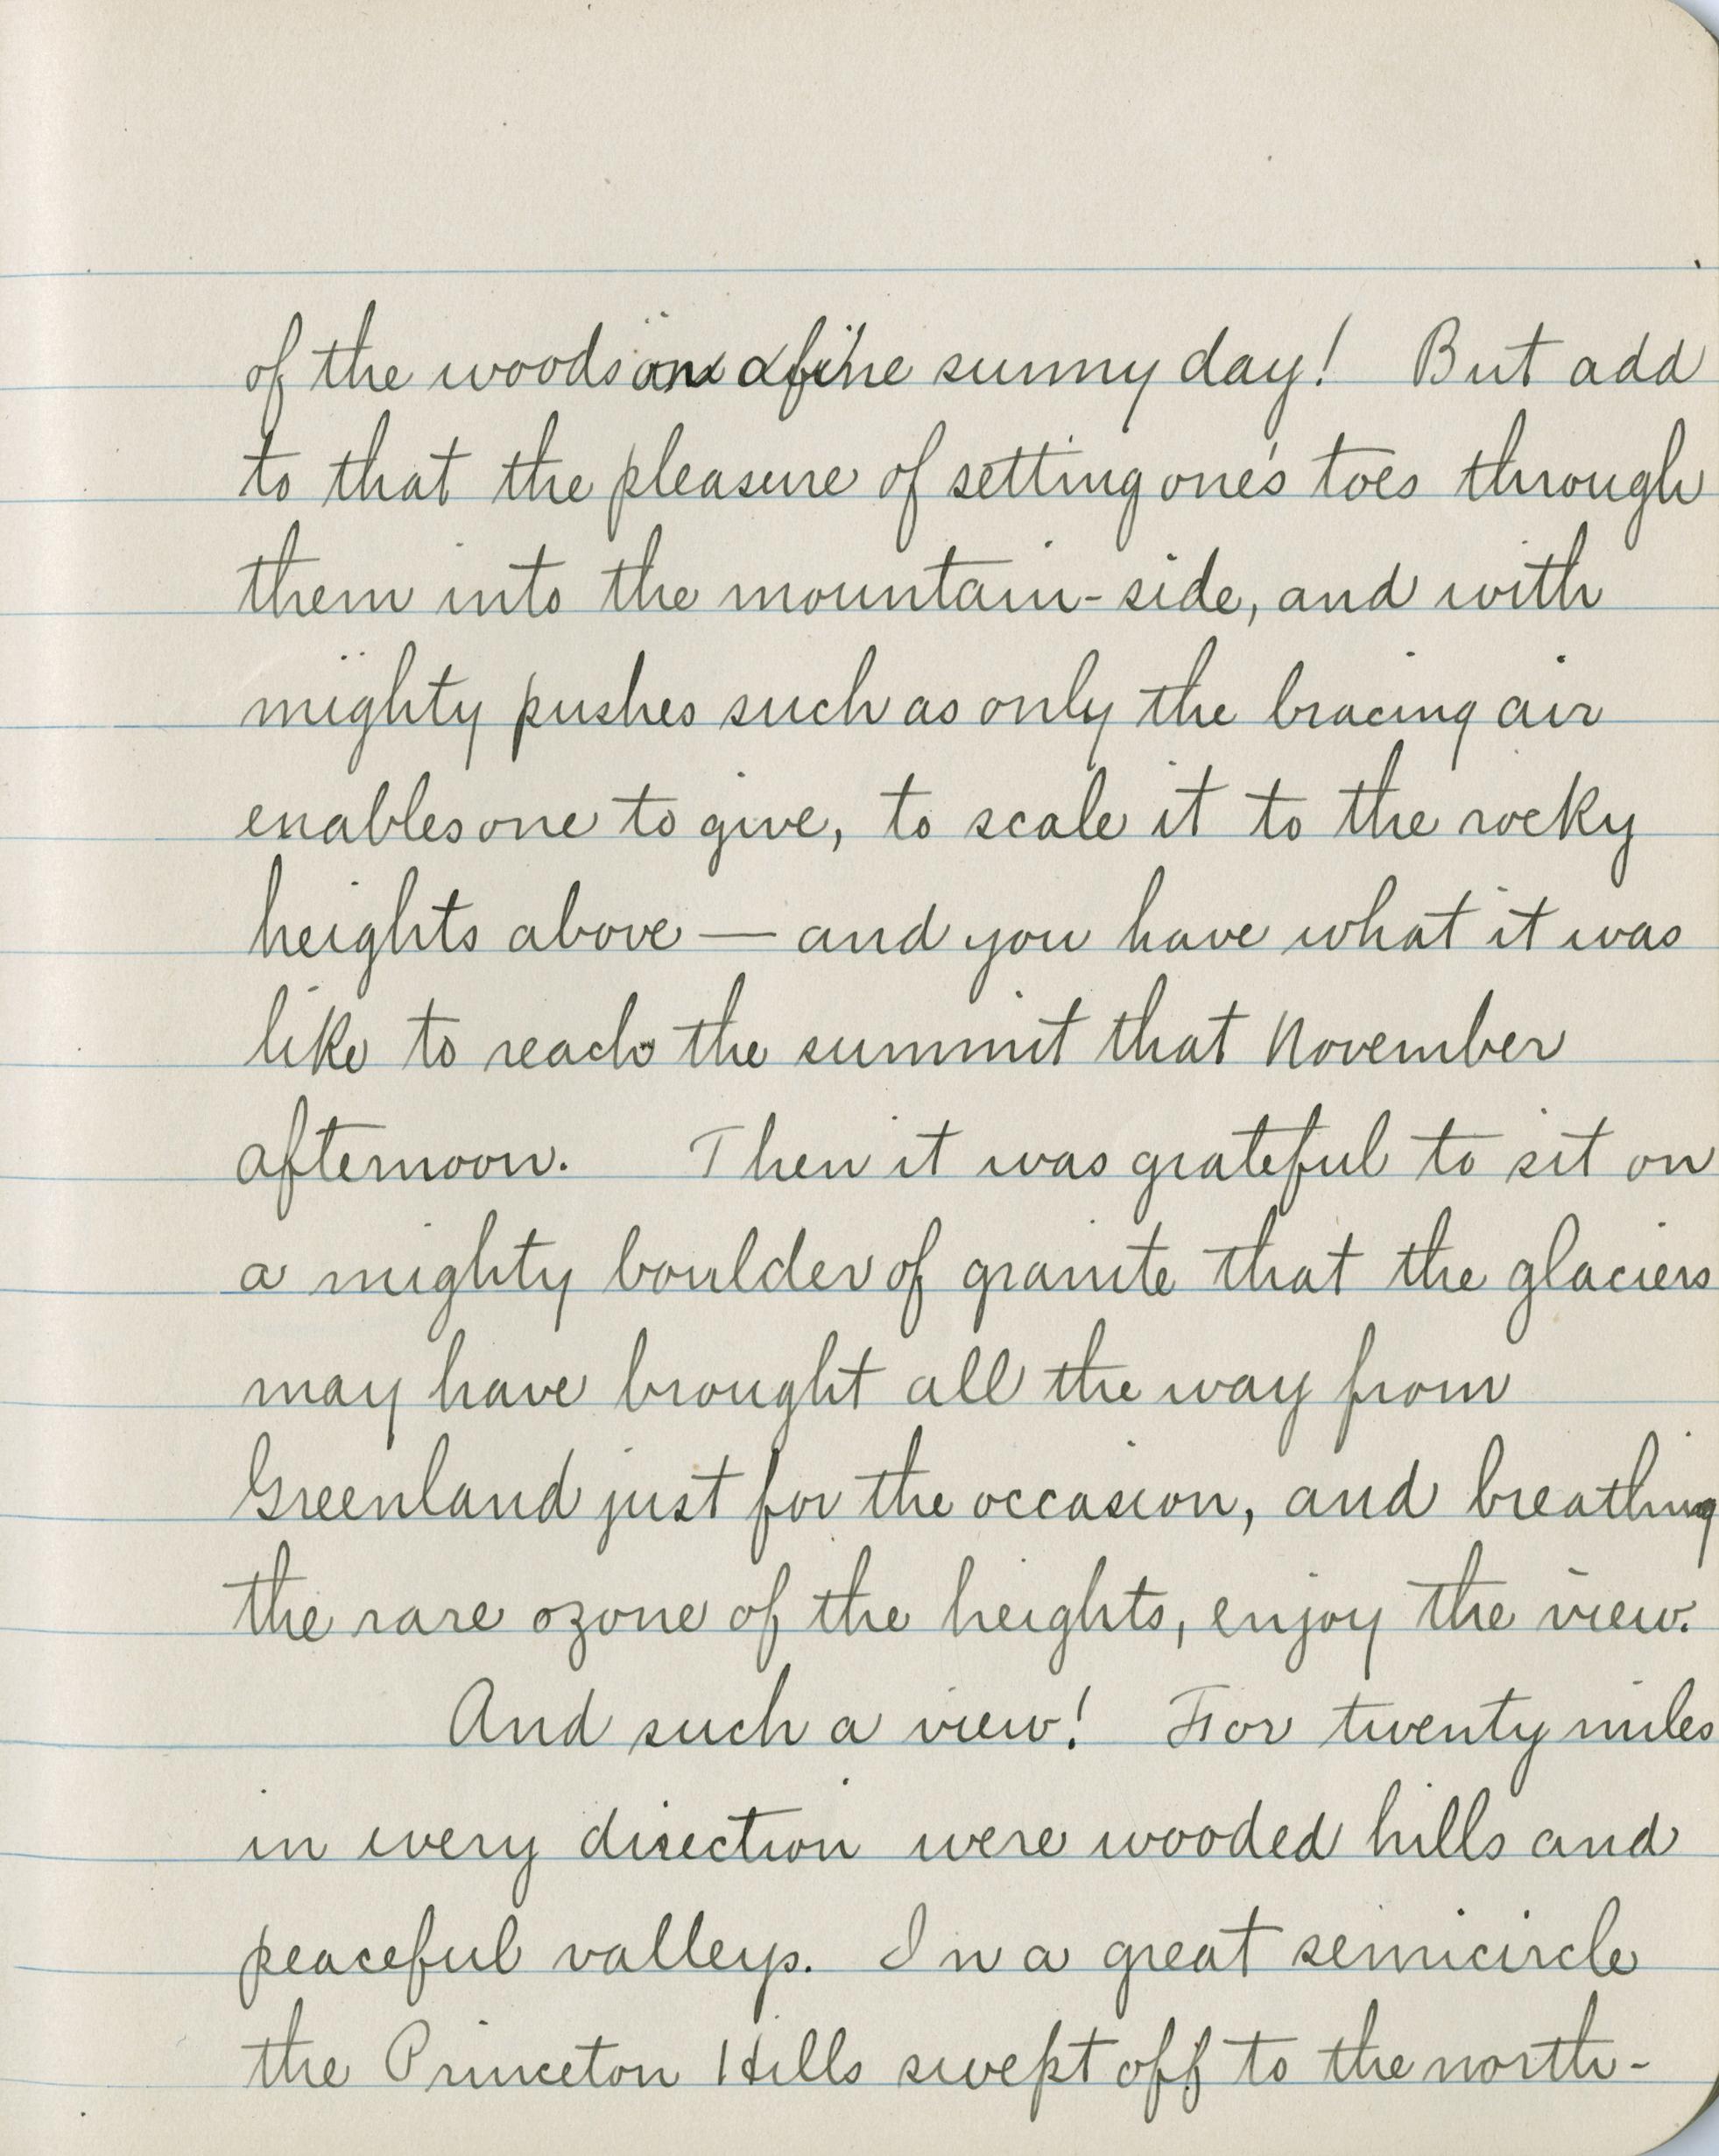 of the woods on a fine sunny day! But add
to that the pleasure of setting one's toes through
them into the mountain-side, and with
mighty pushes such as only the bracing air
enables one to give, to scale it to the rocky
heights above — and you have what it was
like to reach the summit that November
afternoon. Then it was grateful to sit on
a mighty boulder of granite that the glaciers
may have brought all the way from
Greenland just for the occasion, and breathing
the rare ozone of the heights, enjoy the view.
And such a view! For twenty miles
in every direction were wooded hills and
peaceful valleys. In a great semicircle
the Princeton Hills swept off to the north-